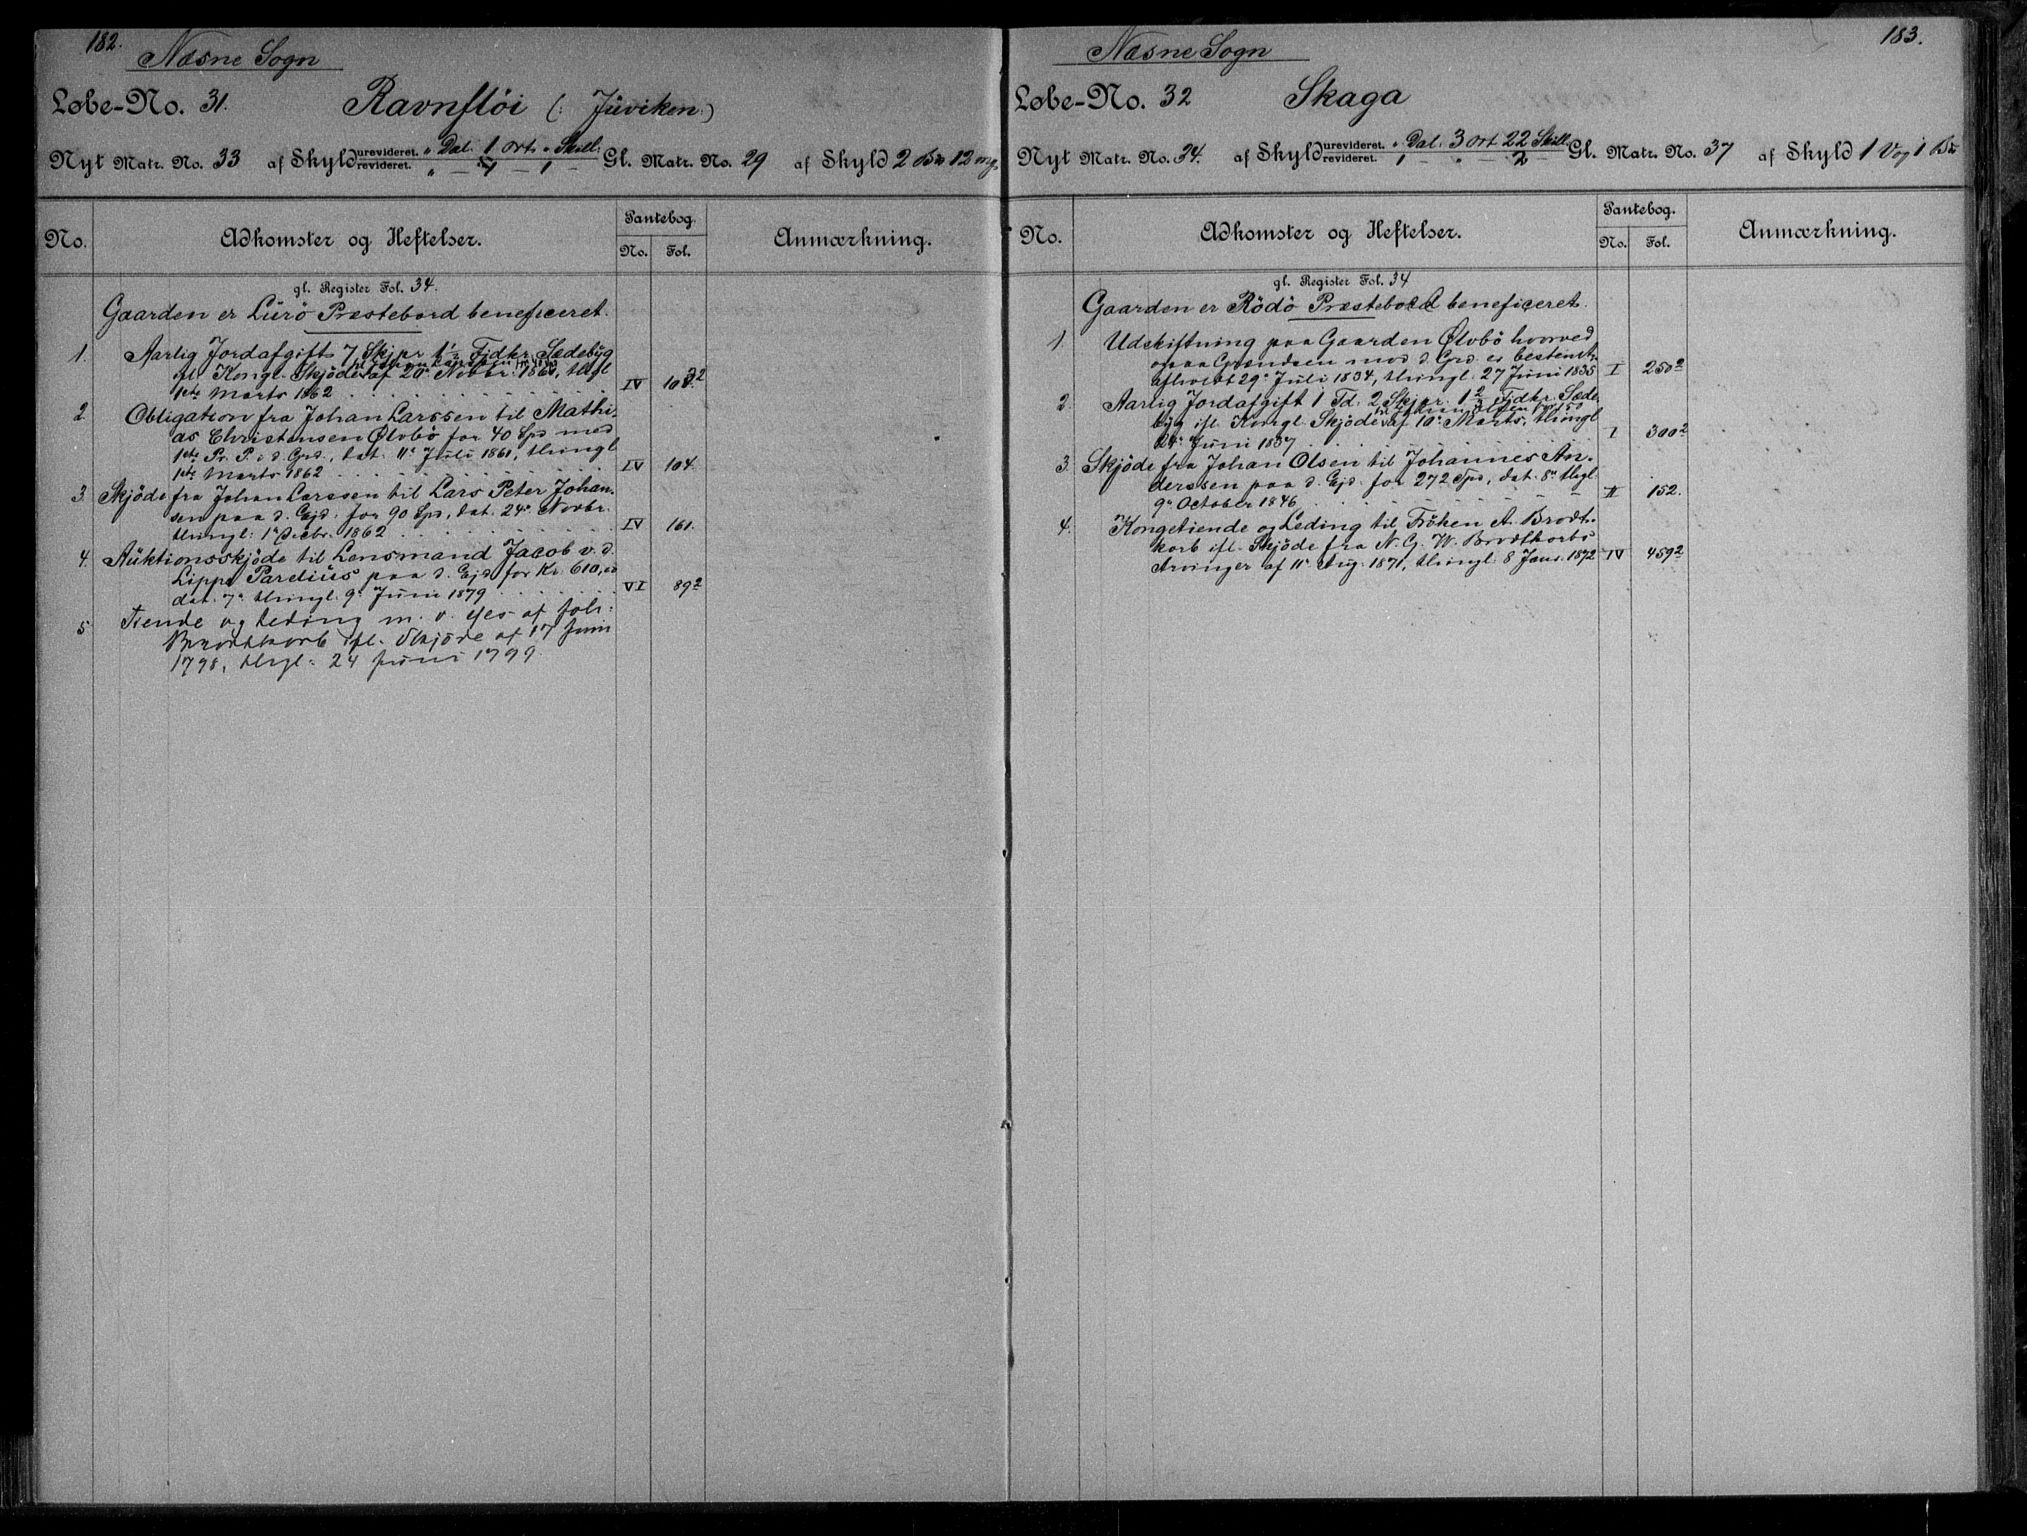 182.
Næsne Sogn
Løbe-No. 31. Ravnfløi (: Jüviken :)
Nyt Matr. No. 33 af Skyld urevideret. " Dal. 1 Ort. " Skill. Gl. Matr. No. 29 af Skyld 2 Bn 12 mg.
revideret. " — — 1 —
No. Adkomster og Heftelser. Pantebog. No. Fol. Anmærkning.
gl. Register Fol. 34.
Gaarden er Lürö Præstebord beneficeret.
1. Aarlig Jordafgift 7 Skjpr 1½ Fjdkr. Sædebyg
ifl. Kongl. Skjöde til Johan Larssen af 20de Novbr. 1860, thgl
1ste Marts 1862 IV
2. Obligation fra Johan Larssen til Mathi-
as Christensen Ølvbö for 40 Spd med
1ste Pr. P. i d. Grd., dat. 11te Juli 1861, thingl
1ste Marts 1862 IV 104.
3. Skjöde fra Johan Larssen til Lars Peter Johan-
sen paa d. Ejd. for 90 Spd, dat. 24de Novbr.
thingl. 1ste Decbr. 1862 IV 161.
4. Auktionsskjöde til Lensmand Jacob v. d.
Lippe Parelius paa d. Ejd. for Kr. 610,00
dat. 7de thingl. 9de Juni 1879 VI 89²
5 Tiende og Leding m. v. eies af Joh:
Brodtkorb ifl. Skjöde af 17 Juni
1798, thgl. 24 Juni 1799.
183.
Næsne Sogn
Løbe-No. 32 Skaga
Nyt Matr. No. 34. af Skyld urevideret. " Dal. 3 Ort 22 Skill. Gl. Matr. No. 37 af Skyld 1 Vog 1 Bn
revideret. 1 — " — 2 —
No. Adkomster og Heftelser. Pantebog. No. Fol. Anmærkning.
gl. Register Fol. 34
Gaarden er Rödö Præstebord beneficeret.
1. Udskiftning paa Gaarden Ølvbö hvorved
ogsaa Grændsen mod d. Grd. er bestemt,
afholdt 29de Juli 1834, thingl. 27 Juni 1835 I 250²
2. Aarlig Jordafgift 1 Td. 2 Skjpr. 1⅔ Fjdkr. Sæde-
byg ifl. Kongl. Skjöde til Johan Olsen af 10de Marts, thingl
24de Juni 1837 I 300²
3. Skjöde fra Johan Olsen til Johannes An-
derssen paa d. Ejd. for 272 Spd, dat. 8de thgl
9de October 1846 II 152.
4. Kongetiende og Leding til Fröken A. Brodt-
korb ifl. Skjöde fra N. G. W. Brodtkorbs
Arvinger af 11te Aug. 1871, thingl. 8 Janr. 1872 IV 459²